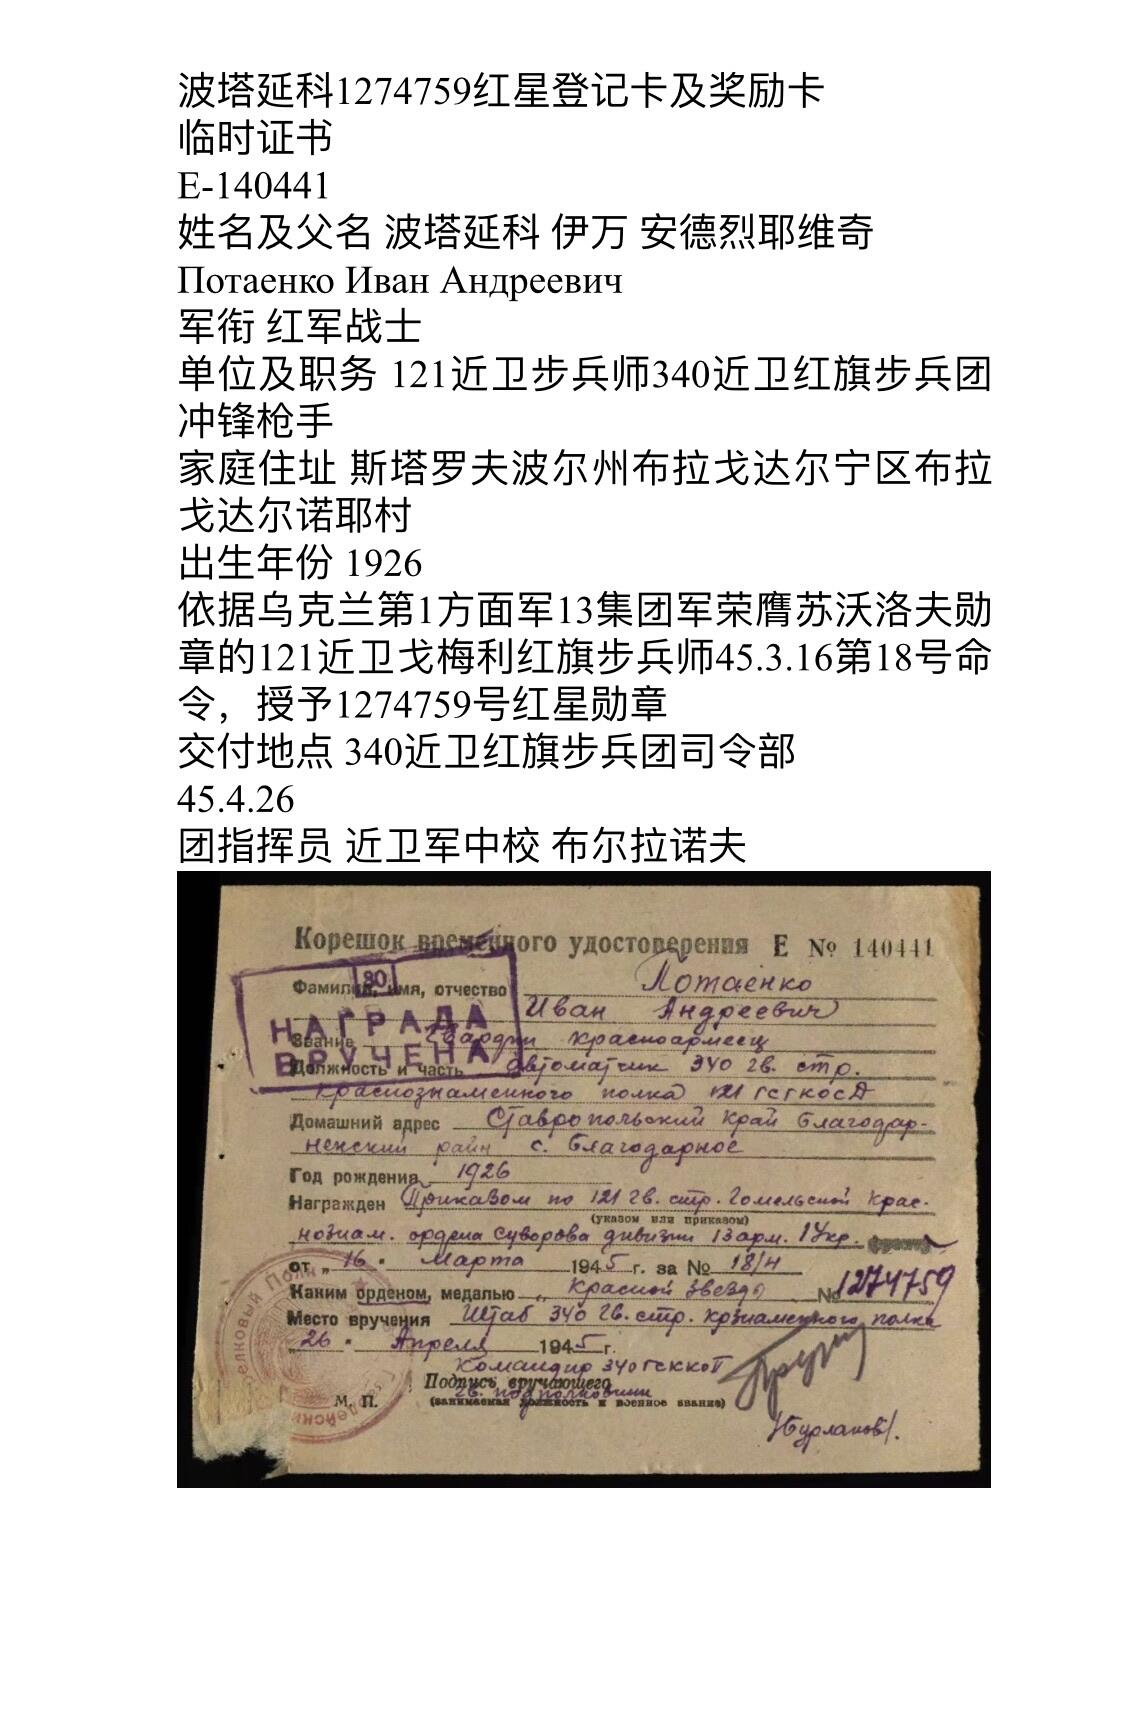 波塔延科1274759红星登记卡及奖励卡
临时证书
E-140441
姓名及父名 波塔延科 伊万 安德烈耶维奇
Потаенко Иван Андреевич
军衔 红军战士
单位及职务 121近卫步兵师340近卫红旗步兵团
冲锋枪手
家庭住址 斯塔罗夫波尔州布拉戈达尔宁区布拉
戈达尔诺耶村
出生年份 1926
依据乌克兰第1方面军13集团军荣膺苏沃洛夫勋
章的121近卫戈梅利红旗步兵师45.3.16第18号命
令，授予1274759号红星勋章
交付地点 340近卫红旗步兵团司令部
45.4.26
团指挥员 近卫军中校 布尔拉诺夫
Корешок временного удостоверения Е № 140441
Фамилия, имя, отчество Потаенко
Иван Андреевич
80
НАГРАДА
ВРУЧЕНА
Звание Гвардии красноармеец
Должность и часть автоматчик 340 гв. стр.
Краснознаменного полка 121 гсгкосд
Домашний адрес Ставропольский край Благодар-
ненский район с. Благодарное
Год рождения 1926
Награжден Приказом по 121 гв. стр. Гомельской Крас-
(указом или приказом)
нознам. ордена Суворова дивизии 13 арм. 1 Укр.
от „16" Марта 1945 г. за № 18/н
Каким орденом, медалью „Красной Звезды № 1274759
Место вручения Штаб 340 гв. стр. Кр.знаменного полка
„26" Апреля 1945 г.
Командир 340 гсккп
Подпись вручающего
гв. подполковник
М. П. (занимаемая должность и военное звание)
/Бурланов/.